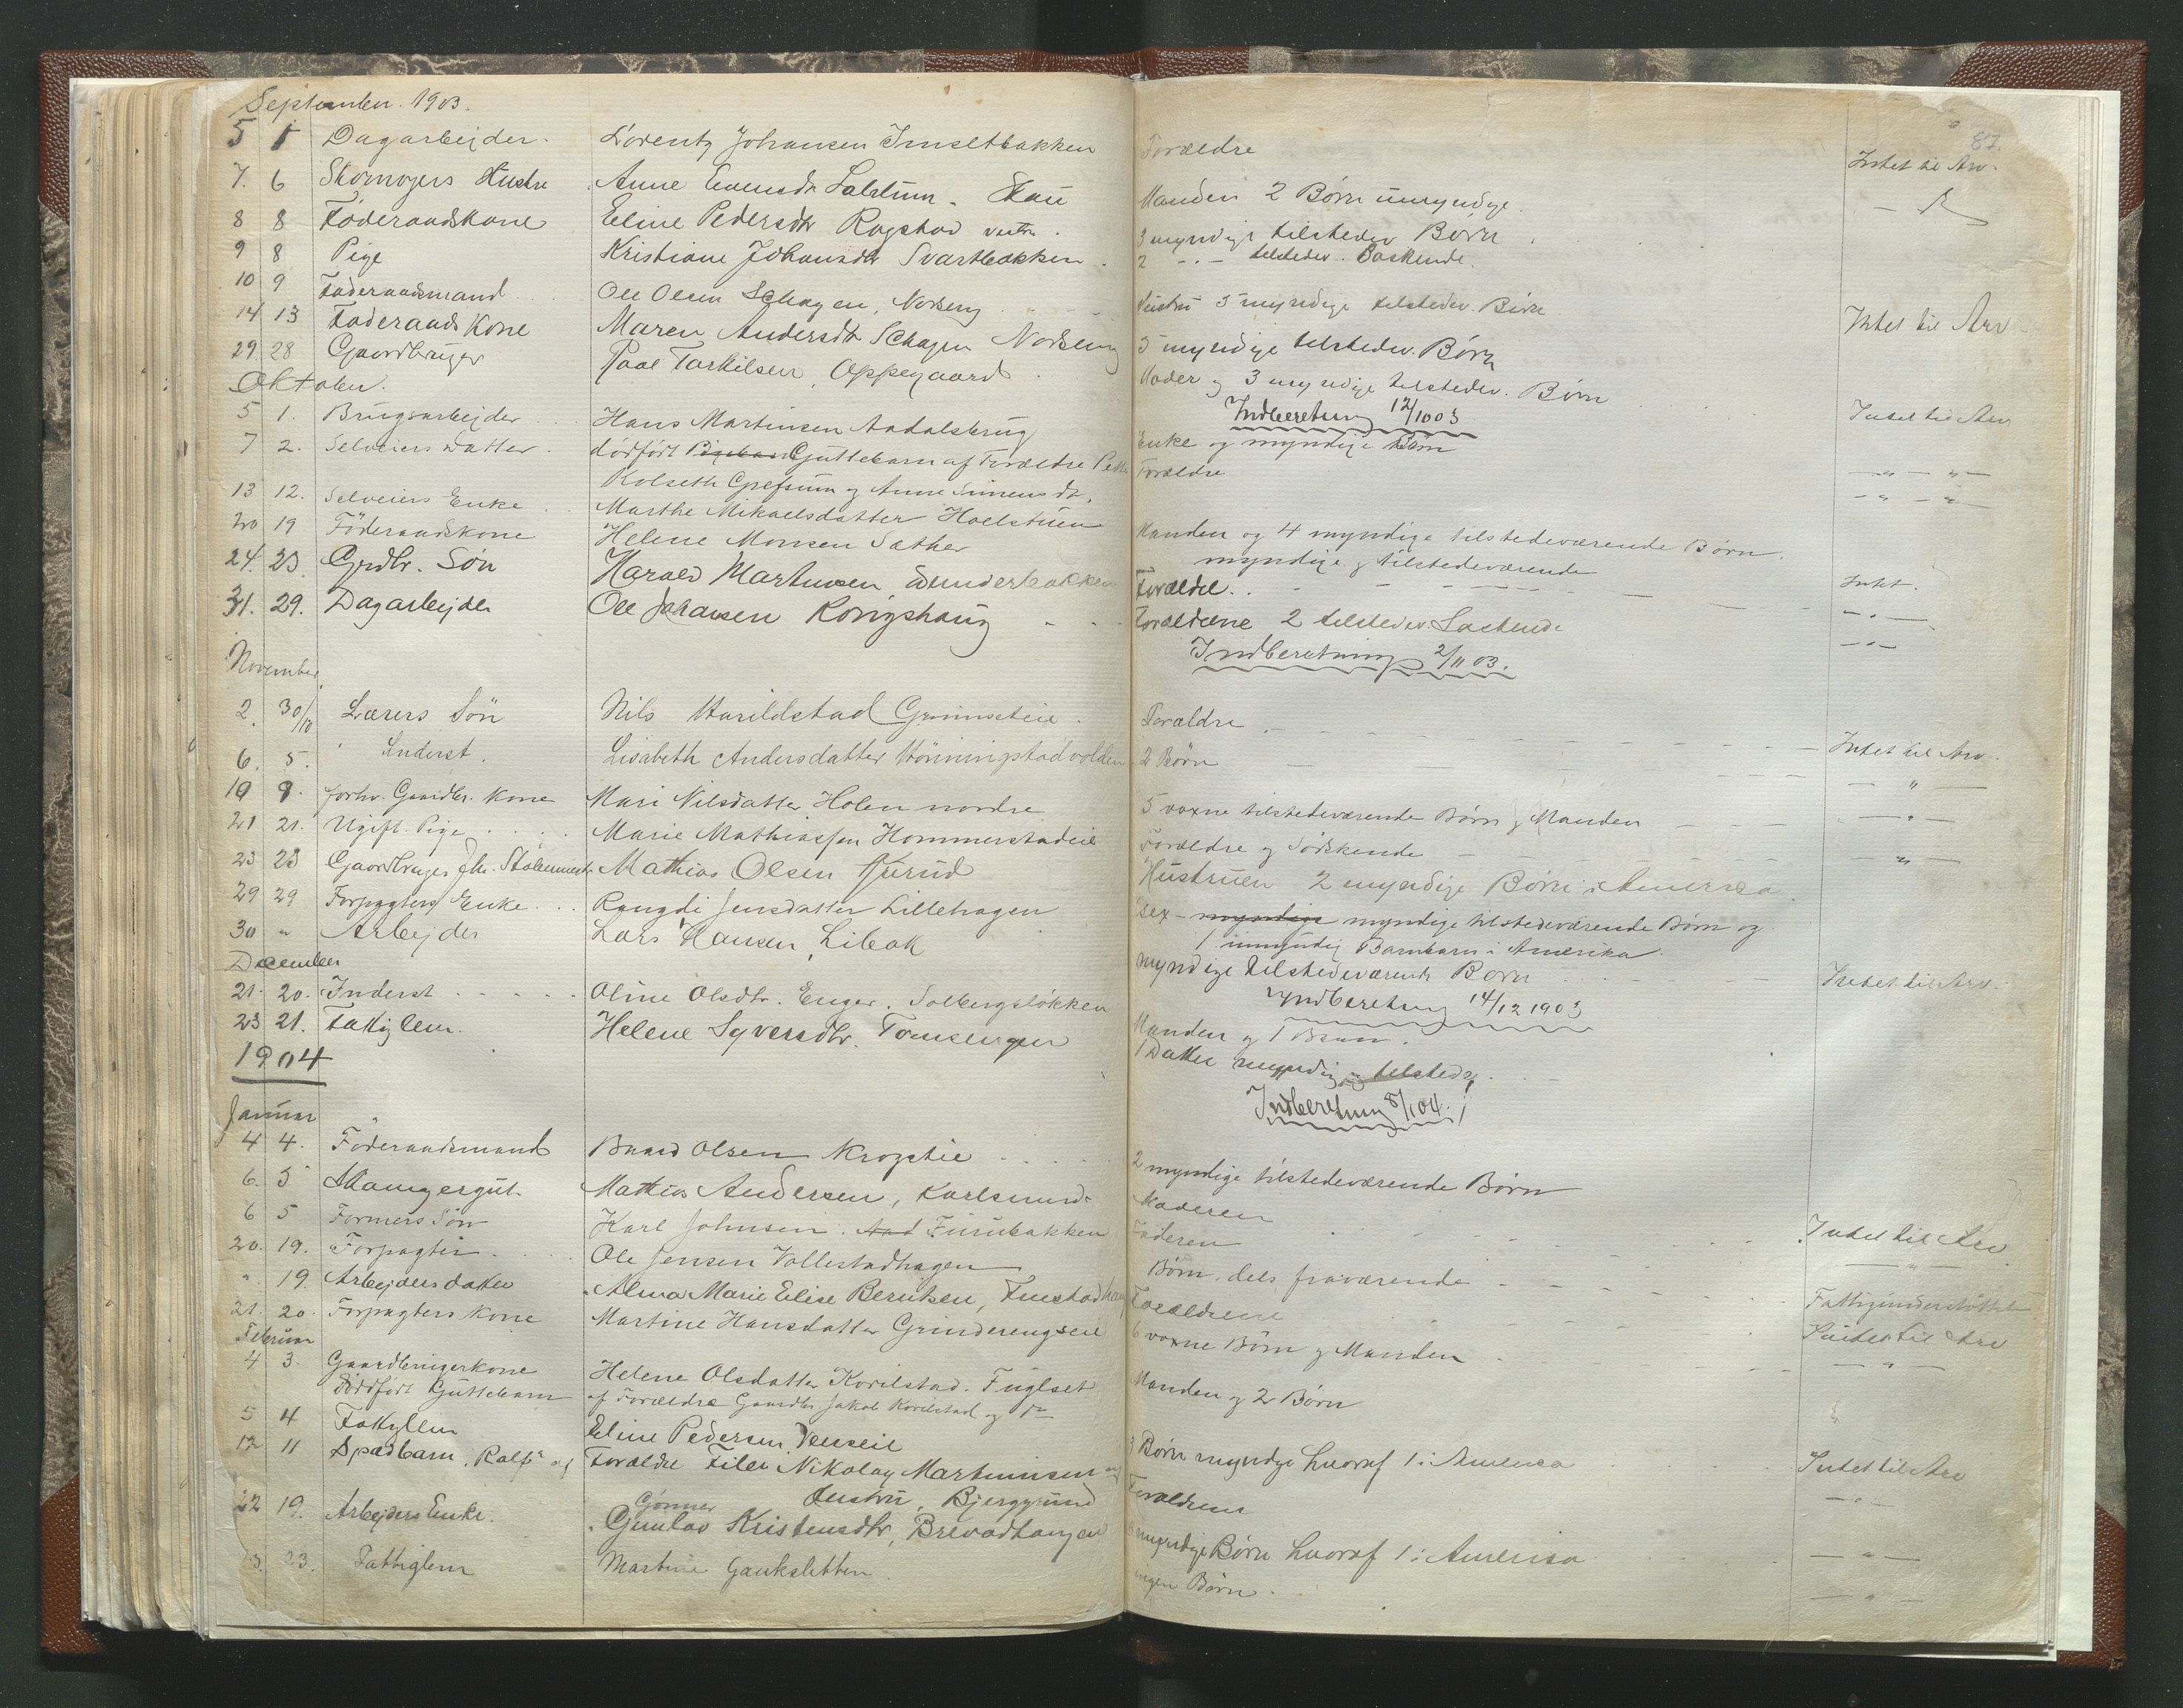 September. 1903.
5 1 Dagarbejder. Lorentz Johansen Imseltbakken
7. 6 Skomagers Hustru Anne Evensdtr
8 8 Föderaadskone Eline Pedersdtr Rogstad vestre.
9 8 Pige Kristiane Johansdtr Svartbakken.
10 9 Föderaadsmand Ole Olsen Skagen, Norseng
14 13 Föderaads Kone Maren Andersdtr Skagen Norseng
29 28 Gaardbruger Paal Tarkilsen, Oppegaard.
Oktober.
5 1. Brugsarbejder Hans Martinsen Aadalsbrug
7 2. Selveiers Datter. dödfört Guttebarn af Forældre
Kolseth Grefsum og Anne Simensdtr.
13 12. Selveiers Enke Marthe Mikaelsdatter Hoelstuen
20 19 Föderaadskone Helene Monsen Sæther
24. 23. Grdbr. Sön Harald Martinsen
31. 29. Dagarbejder Ole Johansen Kongshaug
November
2. 30/10 Lærers Sön Nils Harildstad Grimseteie.
6. 5. Inderst. Lisabeth Andersdatter Hönningstadvolden
10 8. forhv. Gaardbr. Kone Mari Nilsdatter Holen nordre
21 21. Ugift. Pige Marie Mathiassen Hommerstadeie
23 23 Gaardbruger Mathias Olsen Furud
29 29 Forpagters Enke Rangdi Jensdatter Lillehagen
30 " Arbejder Lars Hansen, Libak
December
21. 20. Inderst Oline Olsdtr. Enger. Solbergslökken
23 21. Fattiglem. Helene Syversdtr. Tomsengen
1904
Januar
4 4. Föderaadsmand Baard Olsen Kroptie
6. 5 Mathias Andersen, Karlsrud
6 5 Formers Sön Karl Johnsen. Furubakken
20. 19. Forpagter. Ole Jensen Vollestadhagen
". 19 Arbejders datter Alma Marie Elise Berntsen,
21. 20. Forpagters Kone Martine Hansdatter Grinderengseie
Februar
4 3. Gaardbrugerkone Helene Olsdatter Korilstad. Fuglset
Dödfört Guttebarn af Forældre Gaardbr Jakob Korilstad og
5 4 Fattiglem Eline Pedersen,
12 11 Spædbarn, "Ralf" af Forældre Nikolay Martinnsen og
Hustru, Bjerggrund
22 19. Arbejders Enke. Gunlav Kristensdtr,
Gjønner
23. Fattiglem Martine Gaukstetten
87.
Forældre Intet til Arv.
Manden 2 Børn umyndige.
3 myndige tilstedev Børn
2 -.- tilstedev. Søskende.
Hustru 5 myndige tilstedev. Børn Intet til Arv
5 myndige tilstedev. Børn
Moder og 3 myndige tilstedev. Børn
Indberetning 12/10 03 Intet til Arv
Enke og myndige Børn - " - " -
Forældre - " - "
Manden og 4 myndige tilstedeværende Börn.
myndige og tilstedeværende
Forældre. Intet.
Forældrene 2 tilstedev. Søskende - " -
Indberetning 2/11 03. - " -
Forældre Intet til Arv.
2 Börn - " -
5 voxne tilstedeværende Börn og Manden - " -
Forældre og Södskende - " -
Hustruen 2 myndige Børn i Amerika
sex - myndige myndige tilstedeværende Börn og
1 umyndig Barnebarn i Amerika.
myndige tilstedeværende Børn Intet til Arv.
Indberetning 14/12 1903
Manden og 1 Barn.
1 Datter myndig, tilstede.
Indberetning 8/1 04.
2 myndige tilstedeværende Börn
Moderen
Faderen Intet til Arv
Börn. dels fraværende - " -
Forældrene Fattigunderstöttet
6 voxne Börn og Manden Intet til Arv
- " -
Manden og 2 Börn
3 Børn myndige hvoraf 1 i Amerika Intet til Arv
Forældrene - " -
myndige Børn hvoraf 1 i Amerika - " -
ingen Børn. - " -